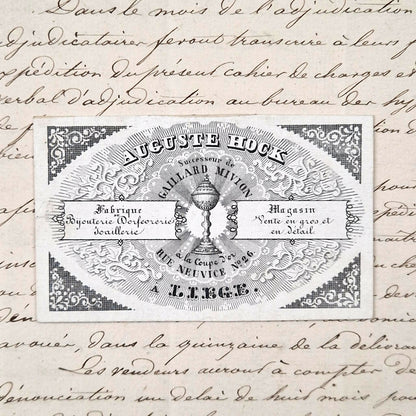 Dans le mois de l'adjudication
adjudicataires feront transcrire à leurs
expédition du présent cahier de charges en
verbal d'adjudication au bureau des hyp
AUGUSTE HOCK
Successeur de
GAILLARD MIVION
Fabrique
Bijouterie Orfèvrerie
Joaillerie
Magasin
Vente en gros et
en détail
à la Coupe d'or
RUE NEUVICE No 26
A LIEGE.
avouer, dans la quinzaine de la délivra
Les vendeurs auront à compter de
dénonciation un délai de huit mois pour